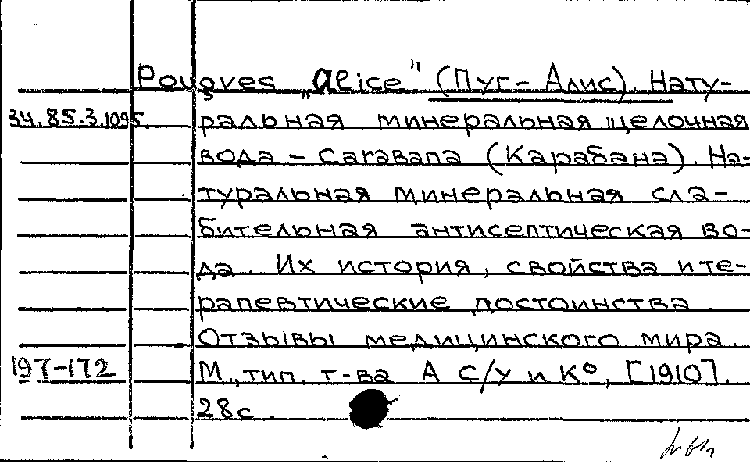 Pougves „Alice" (Пуг-Алис). Нату-
34.85.3.1095. ральная минеральная щелочная
вода - Carabana (Карабана). На-
туральная минеральная сла-
бительная антисептическая во-
да. Их история, свойства и те-
рапевтические достоинства
Отзывы медицинского мира.
197-172 М., тип. т-ва А С/У и К°, [1910].
28с.